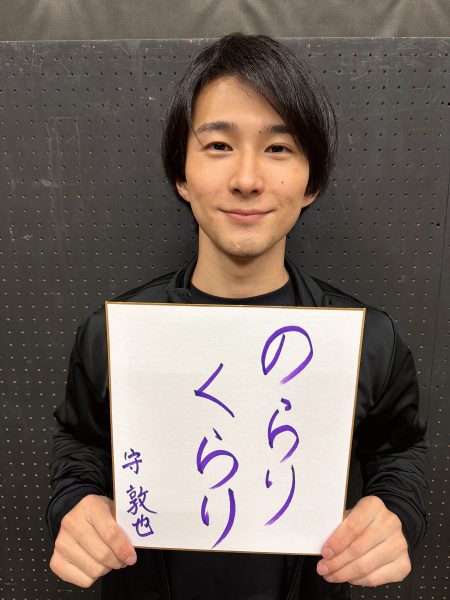 のらり
くらり
守 敦也